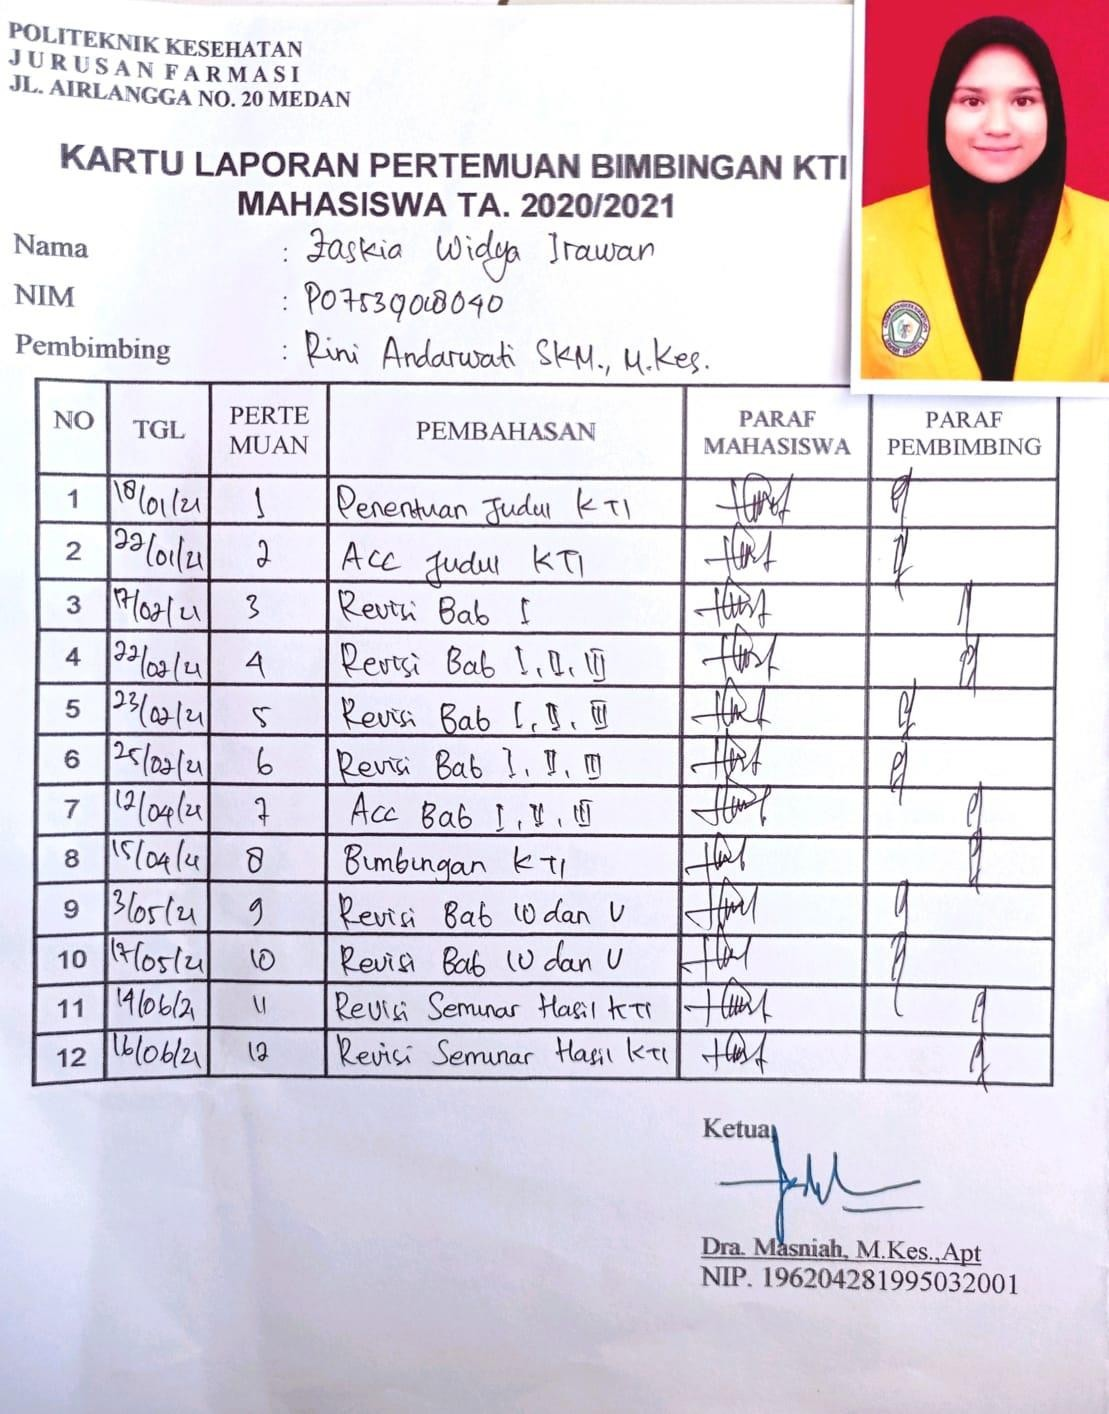 POLITEKNIK KESEHATAN
JURUSAN FARMASI
JL. AIRLANGGA NO. 20 MEDAN
KARTU LAPORAN PERTEMUAN BIMBINGAN KTI
MAHASISWA TA. 2020/2021
Nama : Zaskia Widya Irawan
NIM : P07539018040
Pembimbing : Rini Andarwati SKM., M.Kes.
NO TGL PERTE MUAN PEMBAHASAN PARAF MAHASISWA PARAF PEMBIMBING
1 18/01/21 1 Penentuan Judul KTI
2 22/01/21 2 Acc Judul KTI
3 17/02/21 3 Revisi Bab I
4 22/02/21 4 Revisi Bab I, II, III
5 23/02/21 5 Revisi Bab I, II, III
6 25/02/21 6 Revisi Bab I, II, III
7 12/04/21 7 Acc Bab I, II, III
8 15/04/21 8 Bimbingan KTI
9 3/05/21 9 Revisi Bab IV dan V
10 17/05/21 10 Revisi Bab IV dan V
11 14/06/21 11 Revisi Seminar Hasil KTI
12 16/06/21 12 Revisi Seminar Hasil KTI
Ketua,
Dra. Masniah, M.Kes.,Apt
NIP. 196204281995032001